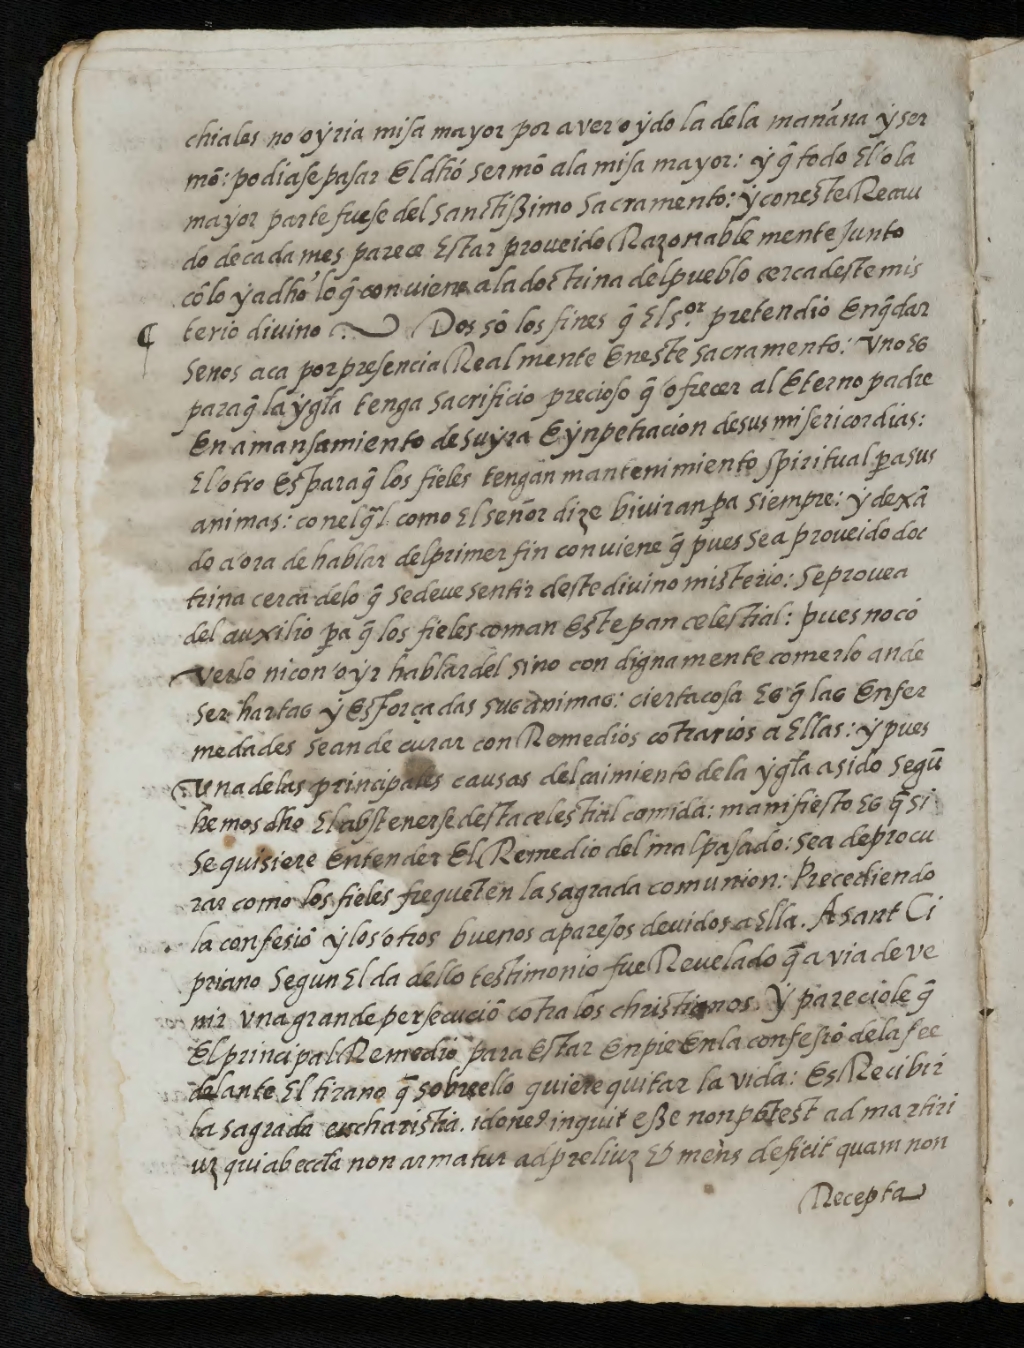 chiales no oyria misa mayor por aver oydo la de la mañana y ser
mō: podiase pasar El dhō sermō a la misa mayor: y q̄ todo El o la
mayor parte fuese del Santissimo Sacramento: y con este Recau
do de cada mes parece Estar proueido Razonablemente Junto
cōlo ya dho lo q̄ conuiene a la doctrina del pueblo cerca deste mis
¶ terio divino Dos sō los fines q̄ El s.or pretendio En q̄dar
senos aca por presencia Realmente En este sacramento: Vno Es
para q̄ la ygl̄a tenga sacrificio precioso q̄ ofrecer al Eterno padre
En amansamiento de su yra E ynpetracion de sus misericordias:
El otro Es para q̄ los fieles tengan mantenimiento spiritual p̱a sus
animas: con el q̄l como El señor dize biuiran p̱a siempre: y dexā
do aora de hablar del primer fin conuiene q̄ pues se a proueido doc
trina cerca de lo q̄ se deue sentir deste divino misterio: se prouea
del auxilio p̱a q̄ los fieles coman Este pan celestial: pues no cō
verlo ni con oyr hablar del sino con dignamente comerlo an de
ser hartas y Esforçadas sus animas: cierta cosa Es q̄ las Enfer
medades se an de curar con Remedios cōtrarios a Ellas: y pues
Vna de las principales causas del caimiento de la ygl̄a a sido segū
hemos dho El abstenerse desta celestial comida: manifiesto Es q̄ si
se quisiere Entender El Remedio del mal pasado: se a de procu
rar como los fieles frequēten la sagrada comunion: Precediendo
la confesiō y los otros buenos aparejos deuidos a Ella. A sant Ci
priano segun El da dello testimonio fue Reuelado q̄ avia de ve
nir vna grande persecuciō cōtra los christianos. Y pareciole q̄
El principal Remedio para Estar En pie En la confesiō de la fee
delante El tirano q̄ sobrello quiere quitar la vida: Es Recibir
la sagrada eucharistia. idoneꝰ inquit esse non potest ad martiri
uꝫ qui ab eccl̄a non armatur ad preliuꝫ & mens deficit quam non
Recepta